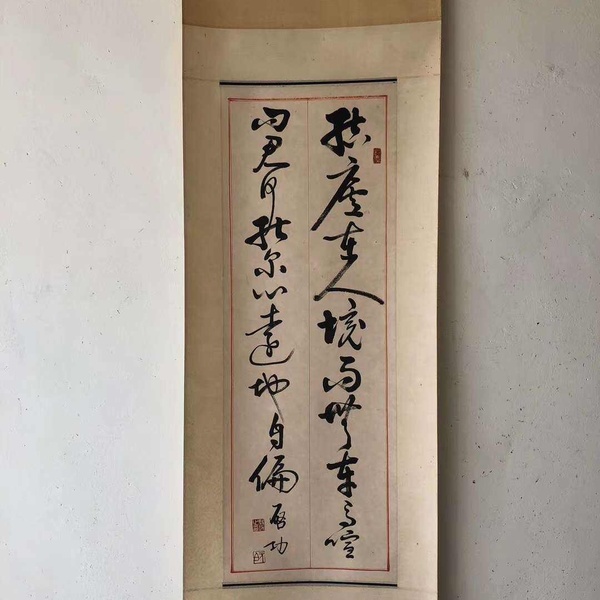 结庐在人境而无车马喧
问君何能尔心远地自偏
启功